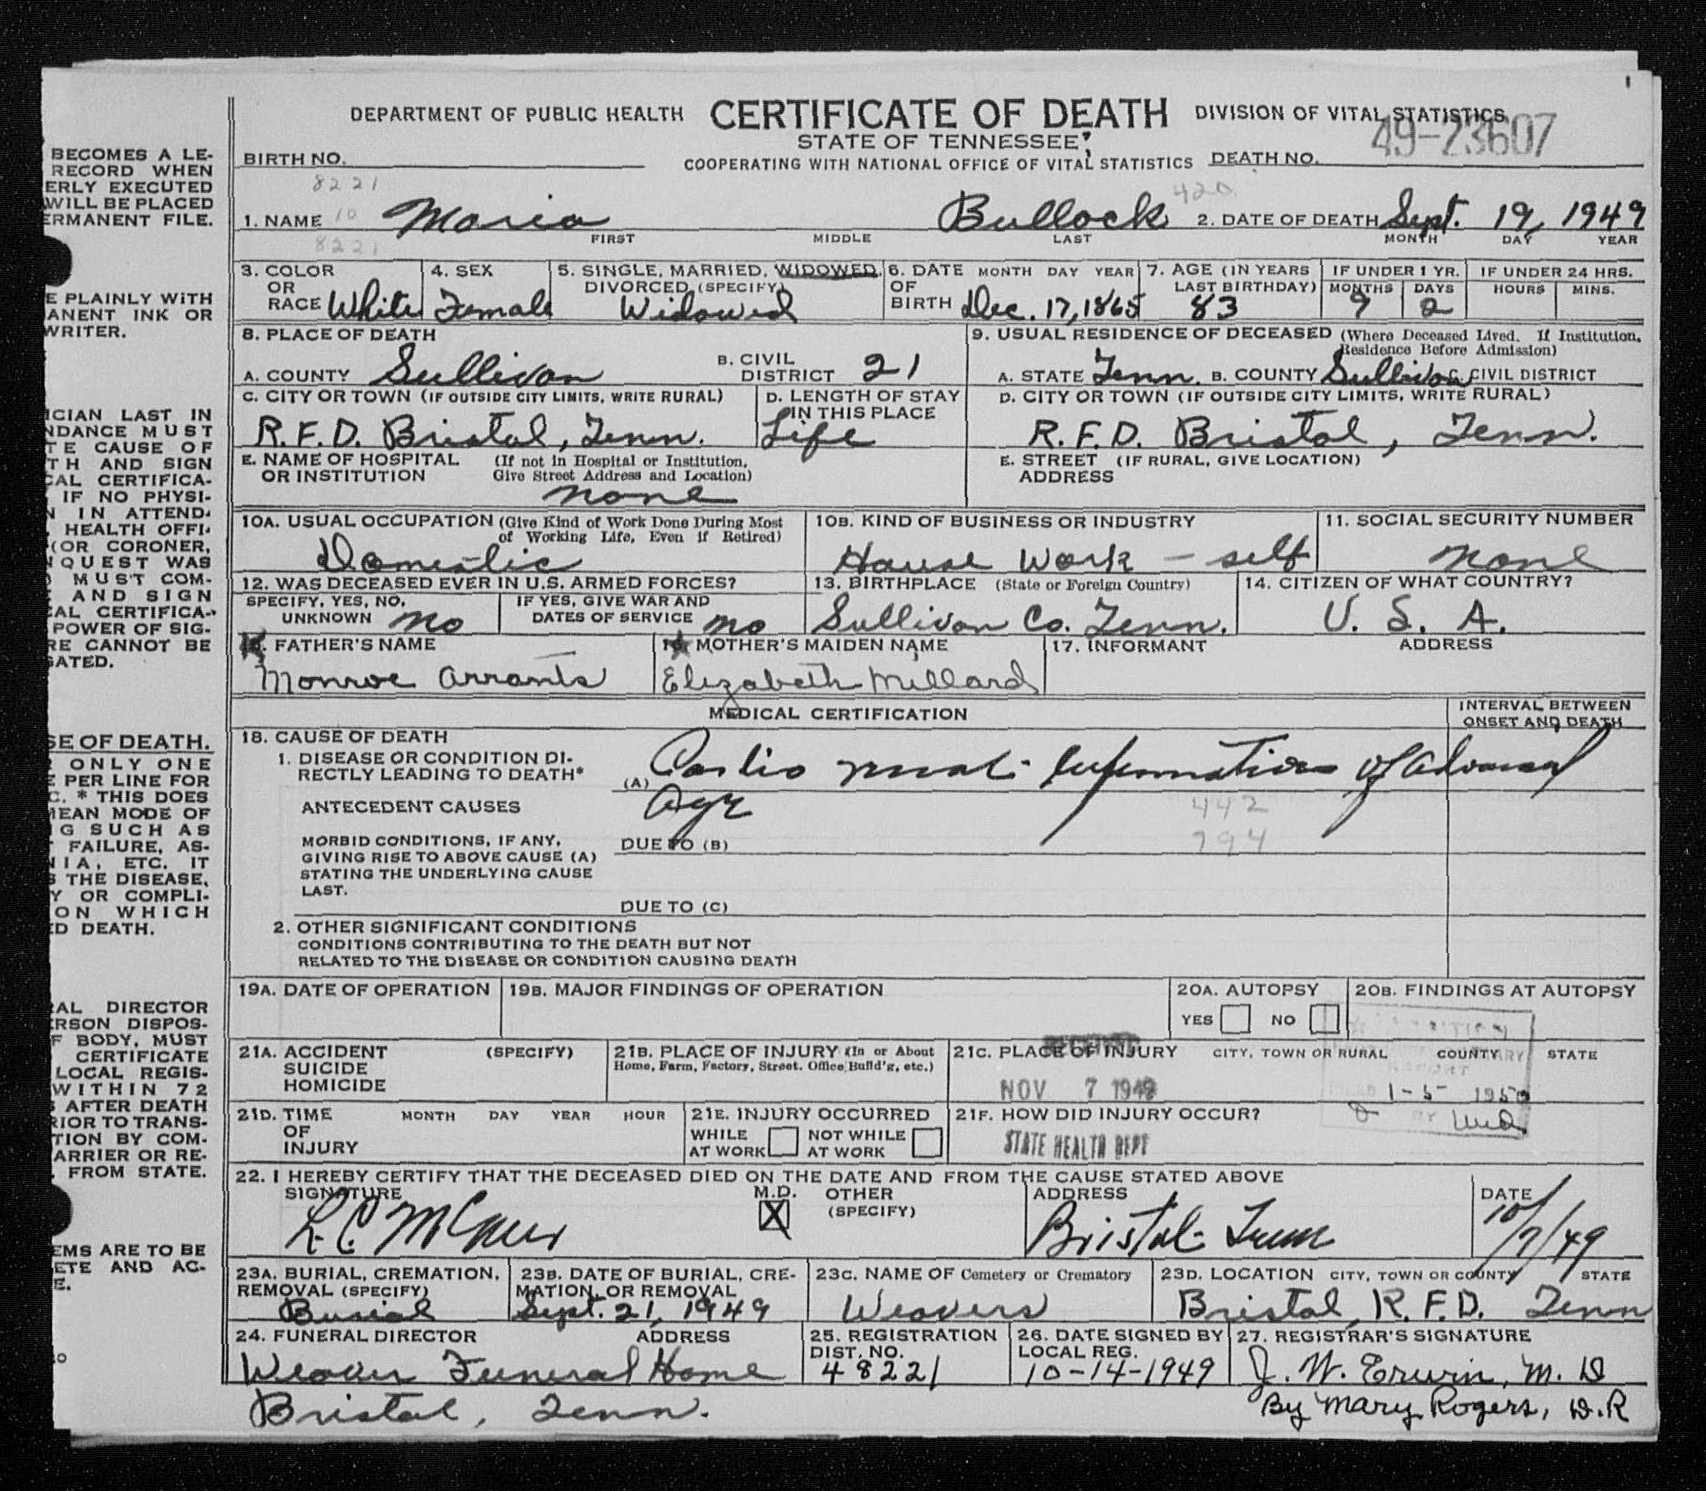 DEPARTMENT OF PUBLIC HEALTH CERTIFICATE OF DEATH DIVISION OF VITAL STATISTICS
STATE OF TENNESSEE
49-23607
BIRTH NO. COOPERATING WITH NATIONAL OFFICE OF VITAL STATISTICS DEATH NO.
8221 420
1. NAME 10 Maria Bullock 2. DATE OF DEATH Sept. 19, 1949
8221 FIRST MIDDLE LAST MONTH DAY YEAR
3. COLOR OR RACE White
4. SEX Female
5. SINGLE, MARRIED, WIDOWED, DIVORCED (SPECIFY) Widowed
6. DATE OF BIRTH MONTH DAY YEAR Dec. 17, 1865
7. AGE (IN YEARS LAST BIRTHDAY) 83
IF UNDER 1 YR. MONTHS 9 DAYS 2
IF UNDER 24 HRS. HOURS MINS.
8. PLACE OF DEATH
A. COUNTY Sullivan B. CIVIL DISTRICT 21
9. USUAL RESIDENCE OF DECEASED (Where Deceased Lived. If Institution, Residence Before Admission)
A. STATE Tenn. B. COUNTY Sullivan C. CIVIL DISTRICT
C. CITY OR TOWN (IF OUTSIDE CITY LIMITS, WRITE RURAL)
R.F.D. Bristol, Tenn.
D. LENGTH OF STAY IN THIS PLACE
Life
D. CITY OR TOWN (IF OUTSIDE CITY LIMITS, WRITE RURAL)
R.F.D. Bristol, Tenn.
E. NAME OF HOSPITAL OR INSTITUTION (If not in Hospital or Institution, Give Street Address and Location)
none
E. STREET ADDRESS (IF RURAL, GIVE LOCATION)
10A. USUAL OCCUPATION (Give Kind of Work Done During Most of Working Life, Even if Retired)
Domestic
10B. KIND OF BUSINESS OR INDUSTRY
House Work - self
11. SOCIAL SECURITY NUMBER
none
12. WAS DECEASED EVER IN U.S. ARMED FORCES?
SPECIFY, YES, NO, UNKNOWN no
IF YES, GIVE WAR AND DATES OF SERVICE no
13. BIRTHPLACE (State or Foreign Country)
Sullivan Co. Tenn.
14. CITIZEN OF WHAT COUNTRY?
U. S. A.
15. FATHER'S NAME
Monroe Arrants
16. MOTHER'S MAIDEN NAME
Elizabeth Millard
17. INFORMANT ADDRESS
MEDICAL CERTIFICATION
INTERVAL BETWEEN ONSET AND DEATH
18. CAUSE OF DEATH
1. DISEASE OR CONDITION DIRECTLY LEADING TO DEATH*
(A) of advanced
age
ANTECEDENT CAUSES
442
794
MORBID CONDITIONS, IF ANY, GIVING RISE TO ABOVE CAUSE (A) STATING THE UNDERLYING CAUSE LAST.
DUE TO (B)
DUE TO (C)
2. OTHER SIGNIFICANT CONDITIONS
CONDITIONS CONTRIBUTING TO THE DEATH BUT NOT
RELATED TO THE DISEASE OR CONDITION CAUSING DEATH
19A. DATE OF OPERATION
19B. MAJOR FINDINGS OF OPERATION
20A. AUTOPSY
YES NO
20B. FINDINGS AT AUTOPSY
21A. ACCIDENT SUICIDE HOMICIDE (SPECIFY)
21B. PLACE OF INJURY (In or About Home, Farm, Factory, Street, Office Build'g, etc.)
21C. PLACE OF INJURY CITY, TOWN OR RURAL COUNTY STATE
RECEIVED
NOV 7 1949
STATE HEALTH DEPT
1-5 1950
21D. TIME OF INJURY MONTH DAY YEAR HOUR
21E. INJURY OCCURRED
WHILE AT WORK NOT WHILE AT WORK
21F. HOW DID INJURY OCCUR?
22. I HEREBY CERTIFY THAT THE DECEASED DIED ON THE DATE AND FROM THE CAUSE STATED ABOVE
SIGNATURE M.D. X OTHER (SPECIFY)
ADDRESS
Bristol Tenn
DATE
10/7/49
23A. BURIAL, CREMATION, REMOVAL (SPECIFY)
Burial
23B. DATE OF BURIAL, CREMATION, OR REMOVAL
Sept. 21, 1949
23C. NAME OF Cemetery or Crematory
Weavers
23D. LOCATION CITY, TOWN OR COUNTY STATE
Bristol, R.F.D. Tenn
24. FUNERAL DIRECTOR ADDRESS
Weaver Funeral Home
Bristol, Tenn.
25. REGISTRATION DIST. NO.
48221
26. DATE SIGNED BY LOCAL REG.
10-14-1949
27. REGISTRAR'S SIGNATURE
J. W. Erwin, M. D
By Mary Rogers, D.R
BECOMES A LE-
RECORD WHEN
ERLY EXECUTED
WILL BE PLACED
ERMANENT FILE.
E PLAINLY WITH
ANENT INK OR
WRITER.
ICIAN LAST IN
NDANCE MUST
TE CAUSE OF
TH AND SIGN
CAL CERTIFICA-
IF NO PHYSI-
N IN ATTEND-
HEALTH OFFI-
(OR CORONER,
QUEST WAS
MUST COM-
AND SIGN
CAL CERTIFICA-
POWER OF SIG-
RE CANNOT BE
GATED.
SE OF DEATH.
ONLY ONE
E PER LINE FOR
C. * THIS DOES
MEAN MODE OF
G SUCH AS
FAILURE, AS-
NIA, ETC. IT
S THE DISEASE,
Y OR COMPLI-
ON WHICH
ED DEATH.
RAL DIRECTOR
ERSON DISPOS-
F BODY, MUST
CERTIFICATE
LOCAL REGIS-
WITHIN 72
S AFTER DEATH
RIOR TO TRANS-
TION BY COM-
ARRIER OR RE-
FROM STATE.
EMS ARE TO BE
ETE AND AC-
E.